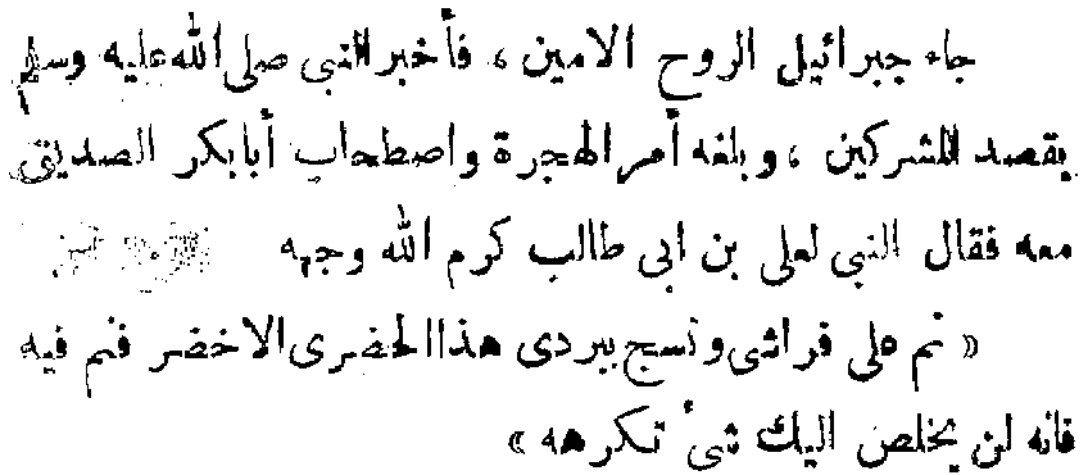 جاء جبرائيل الروح الامين ، فأخبر النبي صلى الله عليه وسلم
بقصد المشركين ، وبلغه أمر الهجرة واصطحاب أبابكر الصديق
معه فقال النبي لعلى بن ابى طالب كرم الله وجهه
« نم على فراشى ونسج ببردى هذا الحضرى الاخضر فنم فيه
فانه لن يخلص اليك شئ تكرهه »